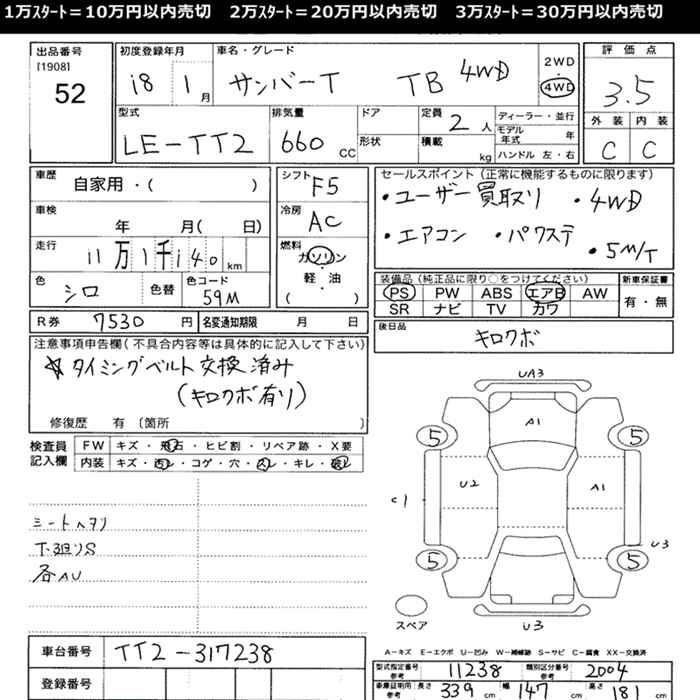 1万ｽﾀｰﾄ=10万円以内売切　2万ｽﾀｰﾄ=20万円以内売切　3万ｽﾀｰﾄ=30万円以内売切
出品番号
[1908]
52
初度登録年月
i8 1月
車名・グレード
サンバーT TB 4WD
2WD
・
4WD
評価点
3.5
外装 内装
C C
型式
LE-TT2
排気量
660 CC
ドア
形状
定員
2人
積載
kg
ディーラー・並行
モデル年式 年
ハンドル 左・右
車歴
自家用・( )
車検
年 月( 日)
走行
11万1千140km
色
シロ
色替
色コード
59M
シフト
F5
冷房
AC
燃料
ガソリン
軽・油
( )
セールスポイント(正常に機能するものに限ります)
・ユーザー買取り ・4WD
・エアコン ・パワステ
・5M/T
装備品(純正品に限り○をつけてください)
PS PW ABS エアB AW
SR ナビ TV カワ
新車保証書
有・無
R券 7530円
名変通知期限 月 日
後日品
キロクボ
注意事項申告欄(不具合内容等は具体的に記入して下さい)
☆タイミングベルト交換済み
(キロクボ有り)
修復歴 有 〔箇所 〕
検査員記入欄
FW キズ・飛石・ヒビ割・リペア跡・X要
内装 キズ・汚レ・コゲ・穴・スレ・キレ・破レ
シートヘタリ
下廻りS
各AU
UA3
A1
5 5
U2
A1
C1
U3
5 5
スペア
U3
車台番号
TT2-317238
登録番号
A－キズ E－エクボ U－凹み W－補修跡 S－サビ C－腐食 XX－交換済
型式指定番号 参考
11238
類別区分番号 参考
2004
車庫証明用 参考
長さ 339cm 幅 147cm 高さ 181cm